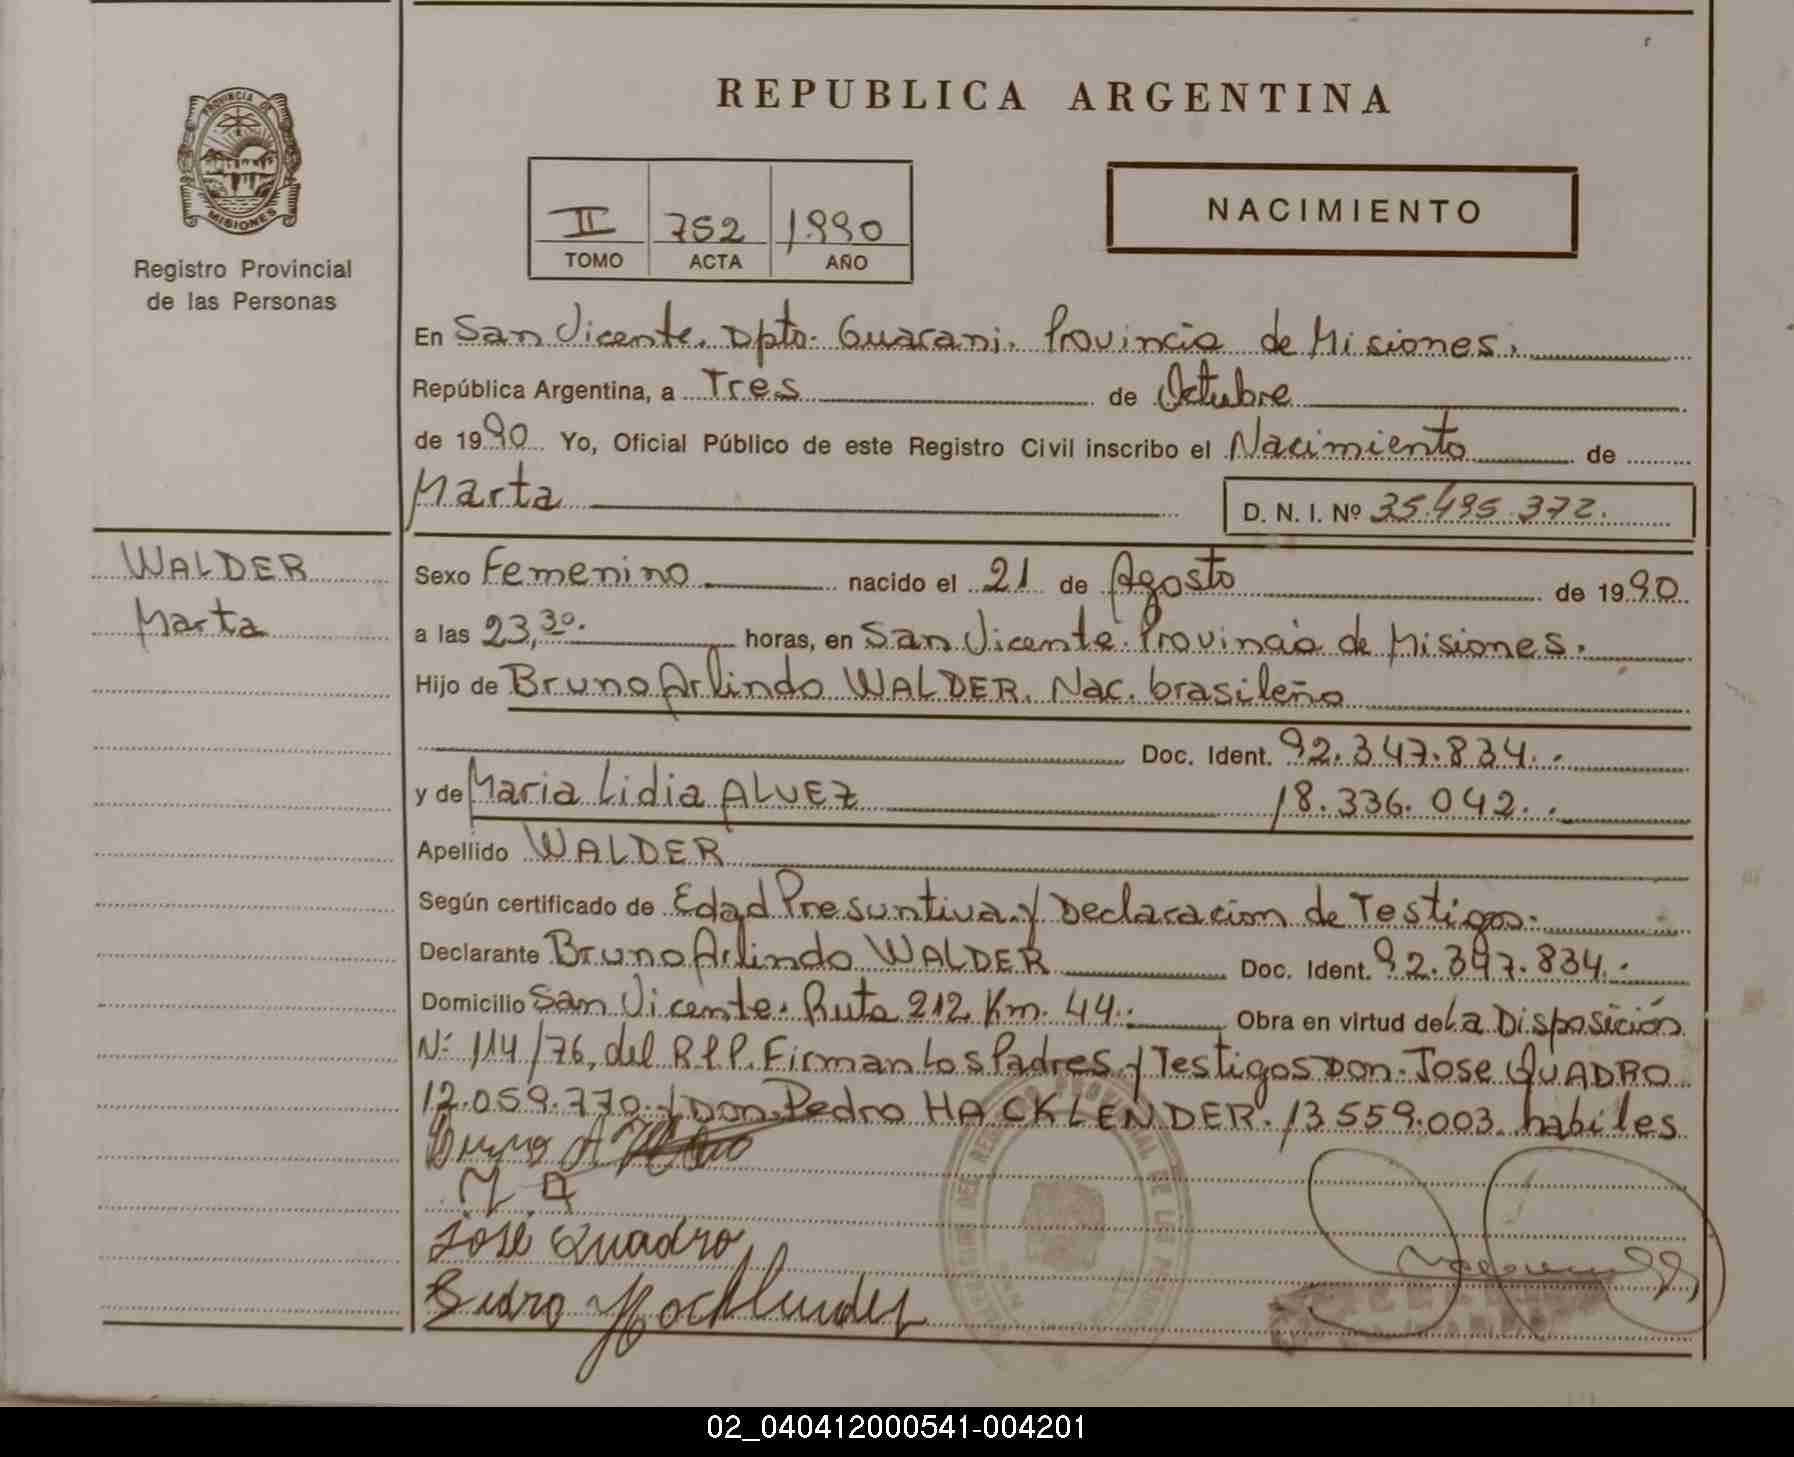 REPUBLICA ARGENTINA
PROVINCIA DE
MISIONES
Registro Provincial
de las Personas
NACIMIENTO
II 752 1990
TOMO ACTA AÑO
En San Vicente. Dpto. Guarani. Provincia de Misiones.
República Argentina, a Tres de Octubre
de 1990 Yo, Oficial Público de este Registro Civil inscribo el Nacimiento de
Marta D. N. I. Nº 35.495.372.
WALDER
Marta
Sexo Femenino nacido el 21 de Agosto de 1990
a las 23,30. horas, en San Vicente. Provincia de Misiones.
Hijo de Bruno Arlindo WALDER. Nac. brasileño
Doc. Ident. 92.347.834.
y de Maria Lidia ALVEZ 18.336.042.
Apellido WALDER
Según certificado de Edad Presuntiva y Declaracion de Testigos.
Declarante Bruno Arlindo WALDER Doc. Ident. 92.347.834.
Domicilio San Vicente. Ruta 212 Km. 44. Obra en virtud de La Disposición
Nº 114/76, del R.P.P. Firman Los Padres y Testigos Don. Jose QUADRO
12.059.770. y Don. Pedro HACKLENDER. 13.559.003. habiles
Bruno A
José Quadro
Pedro Hacklender
02_040412000541-004201